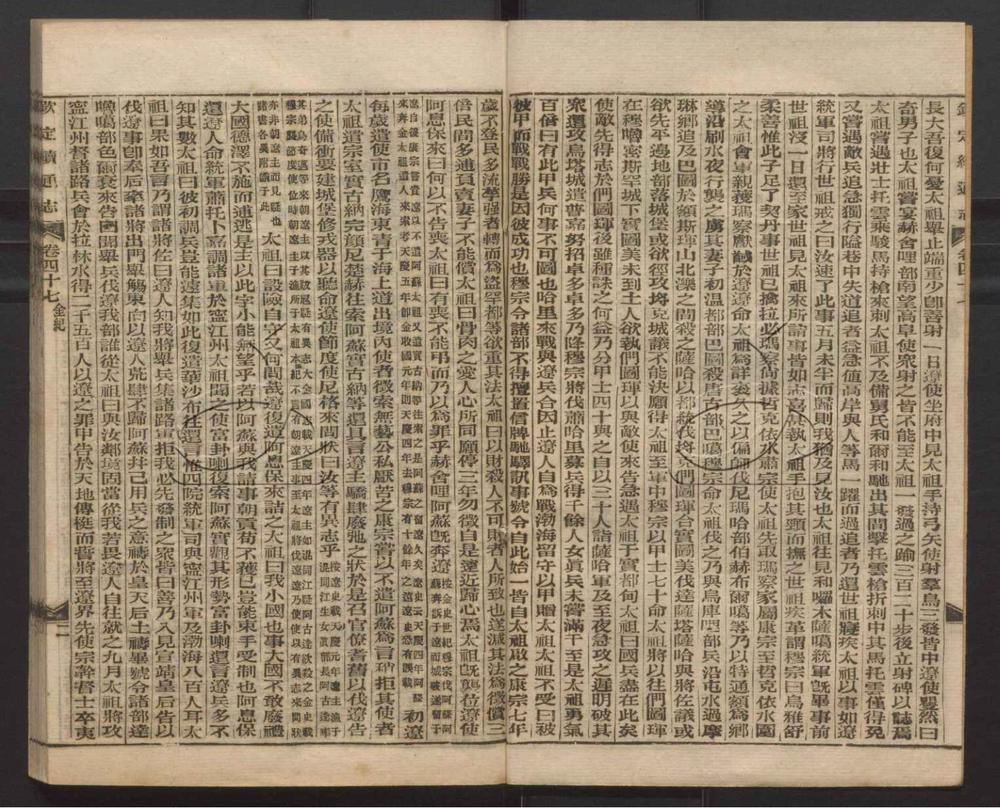 欽定續通志 卷四十七
長大吾復何憂太祖舉止端重少卽善射一日遼使坐府中見太祖手持弓矢使射羣鳥三發皆中遼使矍然曰
奇男子也太祖嘗宴赫舍哩部南望高阜使眾射之皆不能至太祖一發過之踰三百二十步後立射碑以誌焉
太祖嘗遇壯士托雲乘駿馬持槍來刺太祖不及備舅氏和爾和馳出其間擊托雲槍折刺中其馬托雲僅得免
又嘗遇敵兵追急獨行隘巷中失道追者益急値高岸與人等馬一躍而過追者乃還世祖寢疾太祖以事如遼
統軍司將行世祖戒之曰汝速了此事五月未半而歸則我猶及見汝也太祖往見和囉木薩噶統軍旣畢事前
世祖沒一日還至家世祖見太祖來所請事皆如志喜甚執太祖手抱其頸而撫之世祖疾革謂穆宗曰烏雅舒
柔善惟此子足了契丹事世祖已擒拉必瑪察尚據哲克依水肅宗使太祖先取瑪察家屬康宗至哲克依水圍
之太祖會軍親獲瑪察獻馘於遼遼命太祖爲詳衮久之以偏師伐尼瑪哈部伯赫布爾噶等乃以特通額爲鄉
導沿刷水夜行襲之虜其妻子初温都部巴圖殺唐古部巴噶穆宗命太祖伐之乃與烏庫哩部兵沿屯水過摩
琳鄉追及巴圖於額斯琿山北濼之間殺之薩哈以都統伐將克們圖琿合實圖美伐達薩塔薩哈與將佐議或
欲先平邊地部落城堡或欲徑攻將克城議不能決願得太祖至軍中穆宗以甲士七十命太祖將以往們圖琿
在穆嚕密斯罕城下實圖美未到土人欲執們圖琿以與敵使來告急遇太祖于實都甸太祖曰國兵盡在此矣
使敵先得志於們圖琿後雖種誅之何益乃分甲士四十與之自以三十人詣薩哈軍及至夜急攻之遲明破其
眾還攻烏塔城遣普嘉努招卓多卓多乃降穆宗將伐蕭哈里募兵得千餘人女眞兵未嘗滿千至是太祖勇氣
百倍曰有此甲兵何事不可圖也哈里來戰與遼兵合因止遼人自爲戰渤海留守以甲贈太祖太祖不受曰被
彼甲而戰戰勝是因彼成功也穆宗令諸部不得擅置信牌馳驛訊事號令自此始一皆自太祖啟之康宗七年
歲不登民多流莩强者轉而爲盜罕都等欲重其法太祖曰以財殺人不可財者人所致也遂減其法爲徵償三
倍民間多逋負賣妻子不能償太祖曰骨肉之愛人心所同願停三年勿徵自是遠近歸心焉太祖旣嗣位遼使
阿息保來曰何以不告喪太祖曰有喪不能弔而乃以爲罪乎赫舍哩阿蘇旣奔遼
初遼
每歲遣使市名鷹海東青于海上道出境內使者徵索無藝公私厭苦之康宗嘗以不遣阿蘇爲言稍拒其使者
太祖遣宗室實古納完顏尼楚赫往索阿蘇實古納等還具言遼主驕肆廢弛之狀於是召官僚耆舊以伐遼告
之使備衝要建城堡修戎器以聽命遼使節度使尼格來問狀曰汝等有異志乎
太祖曰設險自守又何問哉遼復遣阿息保來詰之太祖曰我小國也事大國不敢廢禮
大國德澤不施而逋逃是主以此字小能無望乎若以阿蘇與我請事朝貢苟不獲已豈能束手受制也阿息保
還遼人命統軍蕭托卜嘉調諸軍於甯江州太祖聞之使富卦喇復索阿蘇實觀其形勢富卦喇還言遼兵多不
知其數太祖曰彼初調兵豈能遽集如此復遣華沙布往還言惟四院統軍司與甯江州軍及渤海八百人耳太
祖曰果如吾言乃謂諸將佐曰遼人知我將舉兵集諸路軍拒我必先發制之眾皆曰善乃入見宣靖皇后告以
伐遼事卽奉后率諸將出門舉觴東向以遼人荒肆不歸阿蘇幷己用兵之意禱於皇天后土禱畢號令諸部達
魯噶部色爾衮來告國聞舉兵伐遼我部誰從太祖曰與汝鄰境固當從我若畏遼人自往就之九月太祖將攻
甯江州督諸路兵會於拉林水得二千五百人以遼之罪申告於天地傳梃而誓將至遼界先使宗幹督士卒夷
欽定續通志 卷四十七 金紀 二